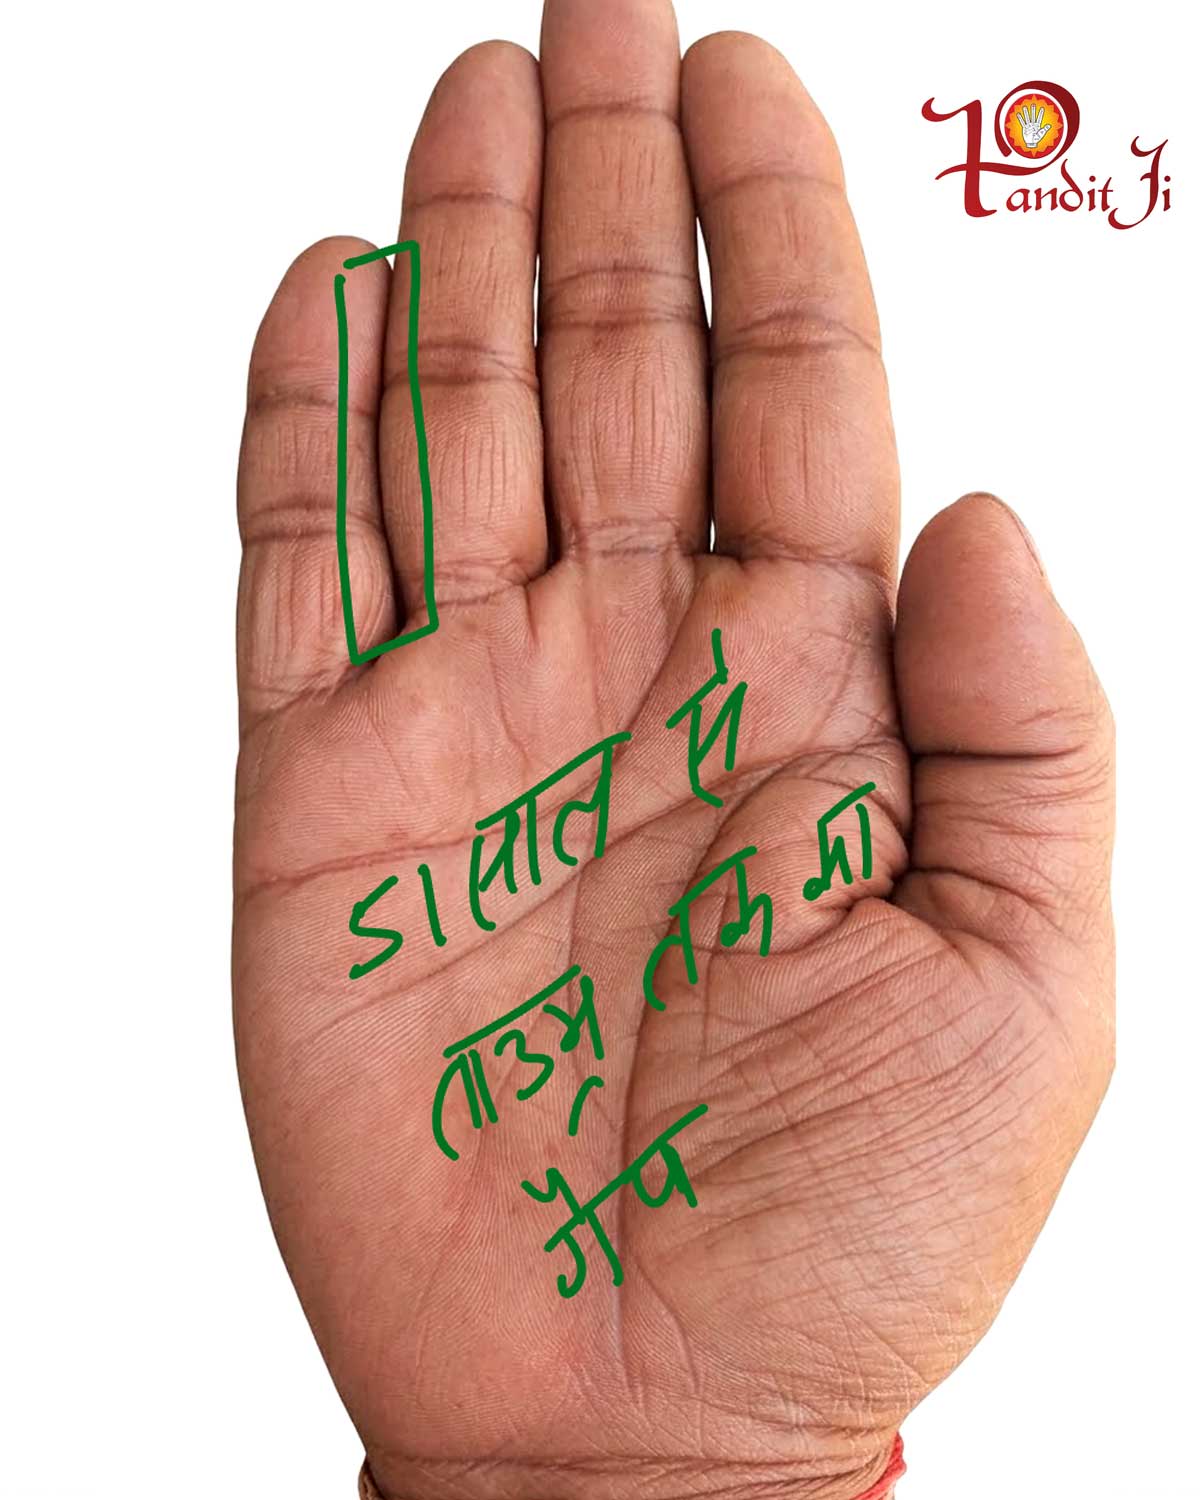 Pandit Ji
51 साल से
ताउम्र तक का
गैप